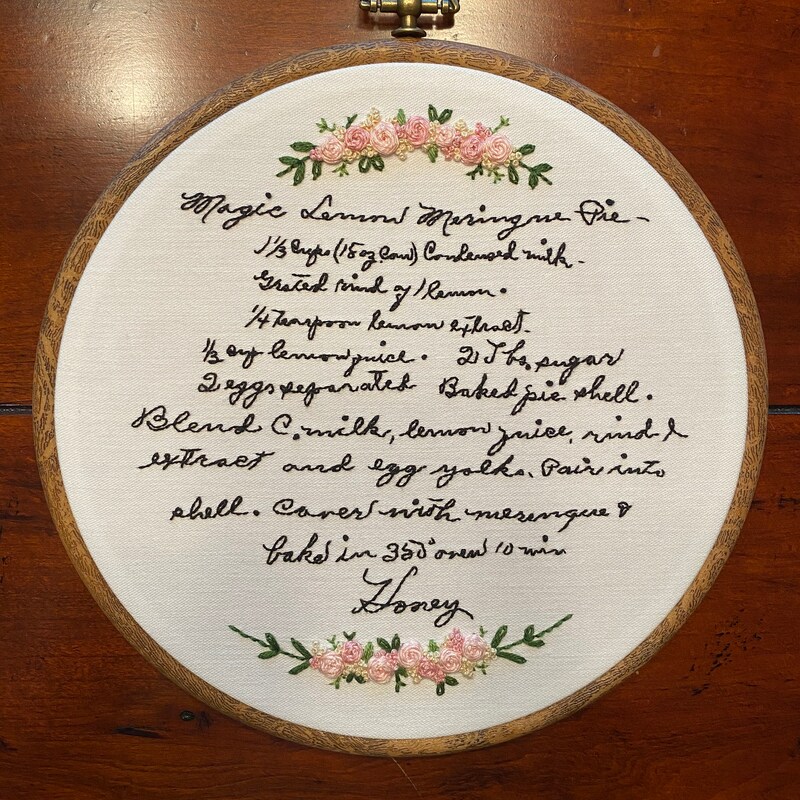 Magic Lemon Meringue Pie -
1 1/3 cups (15 oz. can) Condensed milk.
Grated rind of 1 lemon.
1/4 teaspoon lemon extract.
1/3 cup lemon juice. 2 Tbs. sugar
2 eggs separated Baked pie shell.
Blend C. milk, lemon juice, rind &
extract and egg yolks. Pour into
shell. Cover with meringue &
bake in 350° oven 10 min
Honey